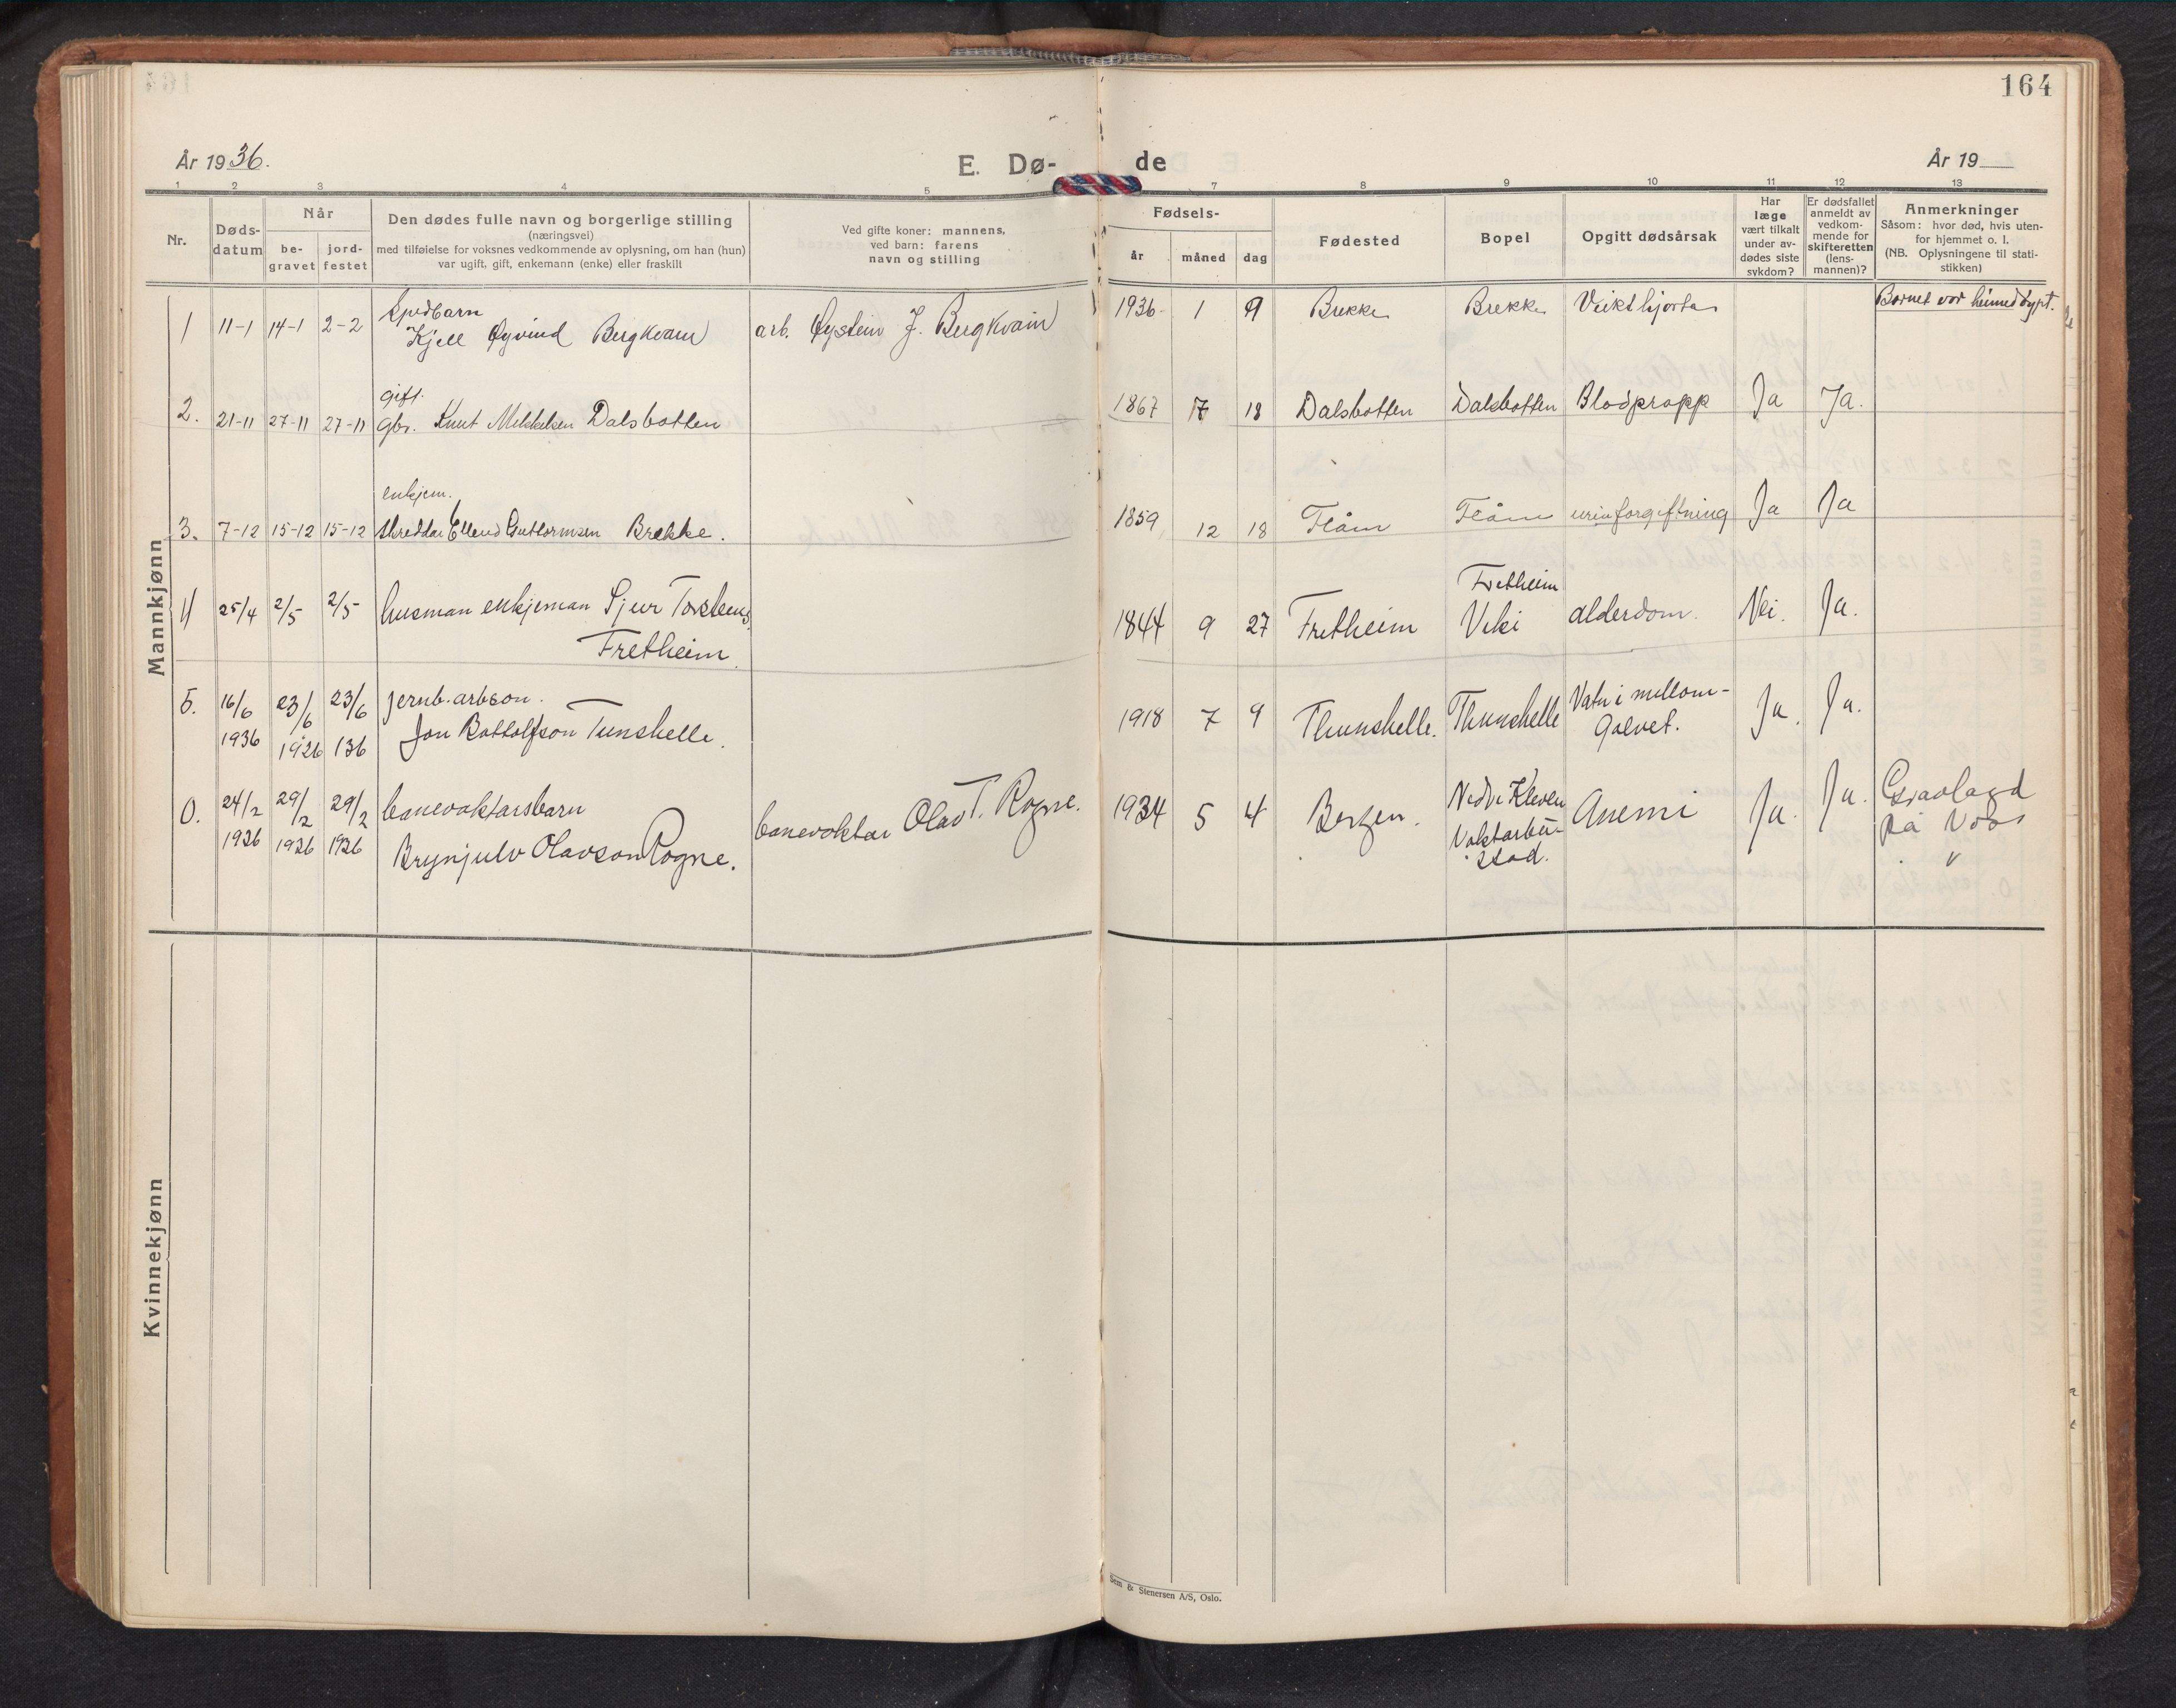 164
År 1936.
E. Dø- de
År 19
1 2 3 4 5 7 8 9 10 11 12 13
Nr.
Døds-
datum
Når
be-
gravet
jord-
festet
Den dødes fulle navn og borgerlige stilling
(næringsvei)
med tilføielse for voksnes vedkommende av oplysning, om han (hun)
var ugift, gift, enkemann (enke) eller fraskilt
Ved gifte koner: mannens,
ved barn: farens
navn og stilling
Fødsels-
år måned dag
Fødested
Bopel
Opgitt dødsårsak
Har
læge
vært tilkalt
under av-
dødes siste
sykdom?
Er dødsfallet
anmeldt av
vedkom-
mende for
skifteretten
(lens-
mannen)?
Anmerkninger
Såsom: hvor død, hvis uten-
for hjemmet o. l.
(NB. Oplysningene til stati-
stikken)
Mannkjønn
Spedbarn
1 11-1 14-1 2-2 Kjell Øyvind Bergkvam arb. Øystein J. Bergkvam 1936 1 9 Brekke Brekke Veikt hjerta Barnet var heimedøypt.
gift.
2. 21-11 27-11 27-11 gbr. Knut Mikkelsen Dalsbotten 1867 7 18 Dalsbotten Dalsbotten Blodpropp Ja Ja.
enkjem.
3. 7-12 15-12 15-12 skreddar Ellend Guttormsen Brekke. 1859 12 18 Flåm Flåm urinforgiftning Ja Ja
4 25/4 2/5 2/5 husman enkjeman Sjur Torsteins.
Fretheim.
1844 9 27 Fretheim
Fretheim
Viki
alderdom. Nei. Ja.
5. 16/6
1936
23/6
1926
23/6
136
jernb.arb.son.
Jon Bottolfson Tunshelle.
1918 7 9 Thunshelle. Thunshelle
Vatn i mellom-
golvet.
Ja. Ja.
0. 24/2
1936
29/2
1936
29/2
1936
banevaktarsbarn
Brynjulv Olavson Rogne.
banevaktar Olav T. Rogne.
1934 5 4 Bergen.
Nedre Kleven
Vaktarbu-
stad.
Anemi Ja. Ja.
Gravlagd
på Voss
Kvinnekjønn
Sem & Stenersen A/S, Oslo.